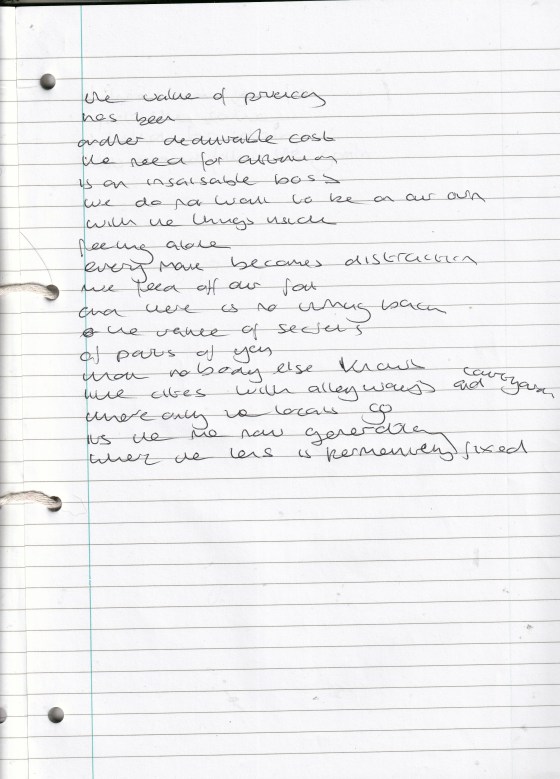 the value of privacy
has been
another deductable cost
the need for attention
is an insaisable boss
we do not want to be on our own
with the things inside
feeling alone
every move becomes distraction
we feed off our
and there is no back
the value of secrets
of parts of you
that nobody else knows
like cities with alleyways and courtyards
where only the locals go
its the new generation
where the lens is permenently fixed